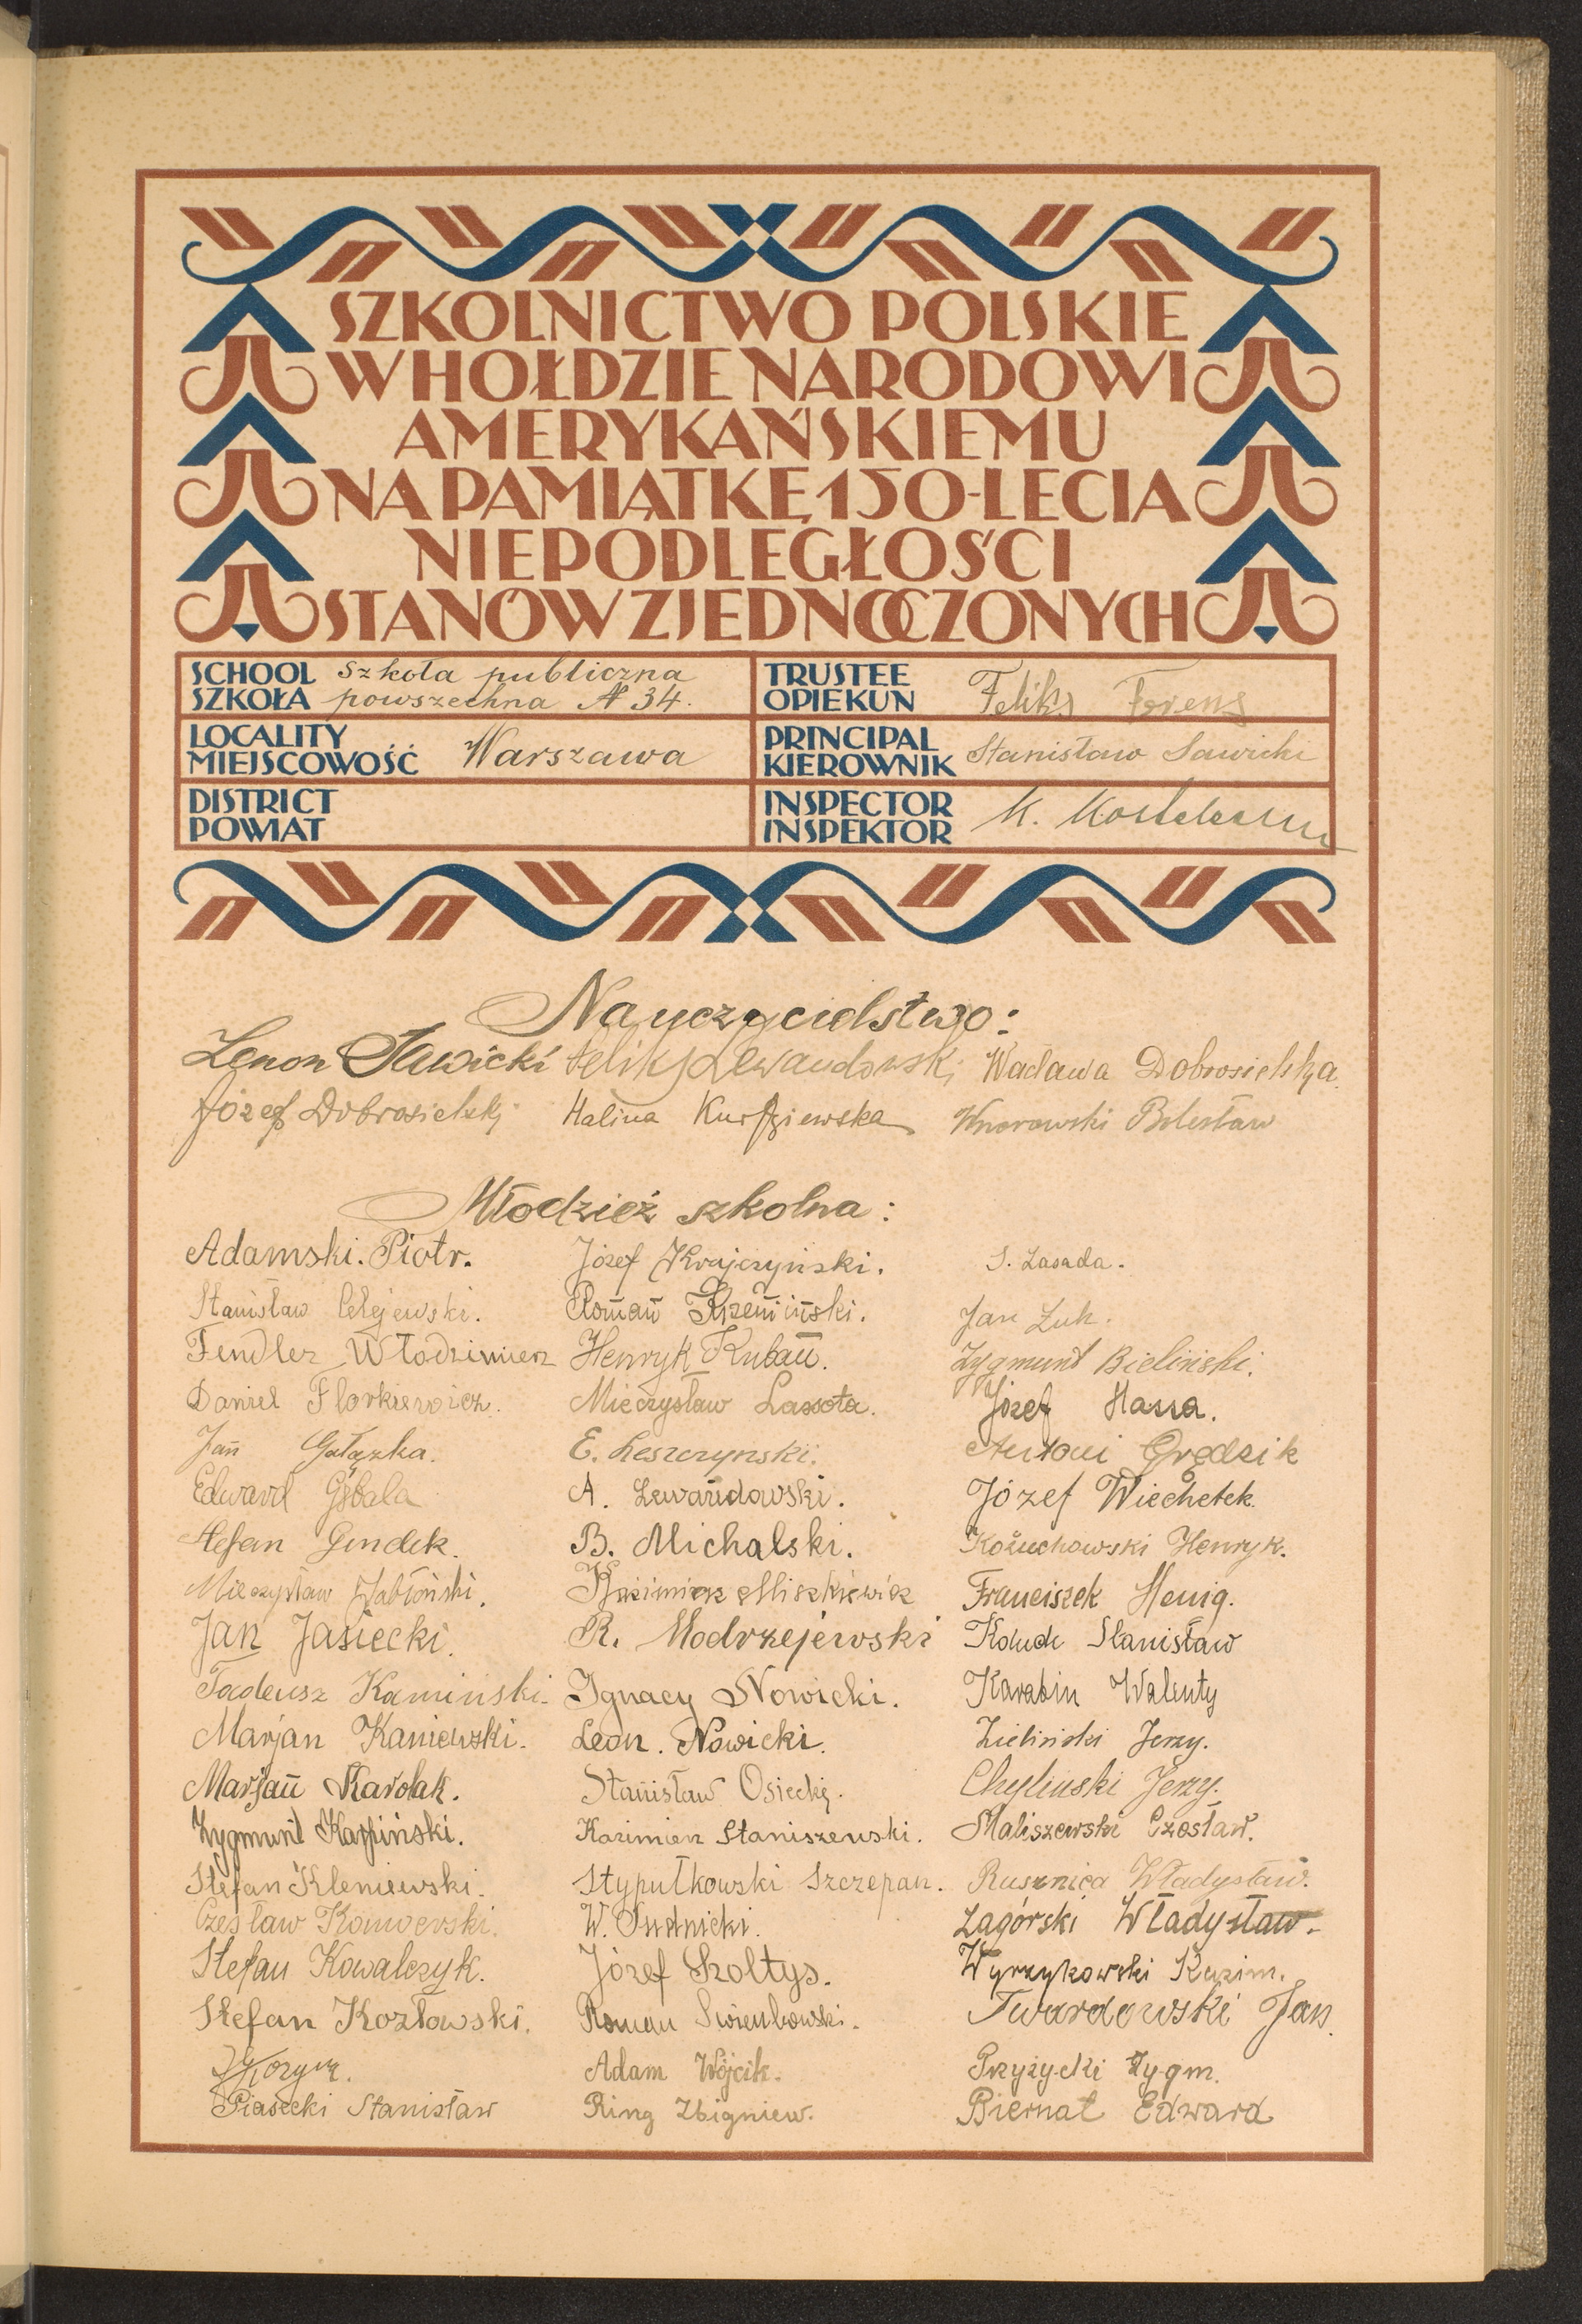 SZKOLNICTWO POLSKIE
W HOŁDZIE NARODOWI
AMERYKAŃSKIEMU
NA PAMIĄTKĘ 150-LECIA
NIEPODLEGŁOŚCI
STANÓW ZJEDNOCZONYCH
SCHOOL Szkoła publiczna
SZKOŁA powszechna № 34.
TRUSTEE
OPIEKUN Feliks
LOCALITY
MIEJSCOWOŚĆ Warszawa
PRINCIPAL
KIEROWNIK Stanisław Sawicki
DISTRICT
POWIAT
INSPECTOR
INSPEKTOR K.
Nauczycielstwo:
Zenon Sawicki Feliks Lewandowski Wacława Dobrosielska
Józef Dobrosielski Halina Wnorowski Bolesław
Młodzież szkolna:
Adamski. Piotr.
Stanisław
Fendler Włodzimierz
Daniel Florkiewicz.
Jan Gałązka.
Edward
Stefan Gendek.
Mieczysław Jabłoński.
Jan Jasiecki.
Tadeusz Kamiński.
Marjan Kaniewski.
Marjan Karolak.
Zygmunt Karpiński.
Stefan Kleniewski.
Czesław
Stefan Kowalczyk.
Stefan Kozłowski.
Piasecki Stanisław
Józef Krajczyński.
Roman Krzemiński.
Henryk Kuban.
Mieczysław Lassota.
E. Leszczynski.
A. Lewandowski.
B. Michalski.
Kazimierz Miszkiewicz
R. Modrzejewski
Ignacy Nowicki.
Leon. Nowicki.
Stanisław Osiecki.
Kazimierz Staniszewski.
Stypułkowski Szczepan.
W. Sudnicki.
Józef Szoltys.
Roman
Adam Wójcik.
Ring Zbigniew.
S. Zasada.
Jan Żuk.
Zygmunt Bieliński.
Józef Hassa.
Antoni Grędzik
Józef Wiechetek.
Kożuchowski Henryk.
Franciszek Henig.
Stanisław
Karabin Walenty
Zieliński Jerzy.
Chyliński Jerzy.
Maliszewski Czesław.
Rusznica Władysław.
Zagórski Władysław.
Wyrzykowski Kazim.
Twardowski Jan.
Przyżycki Zygm.
Biernat Edward